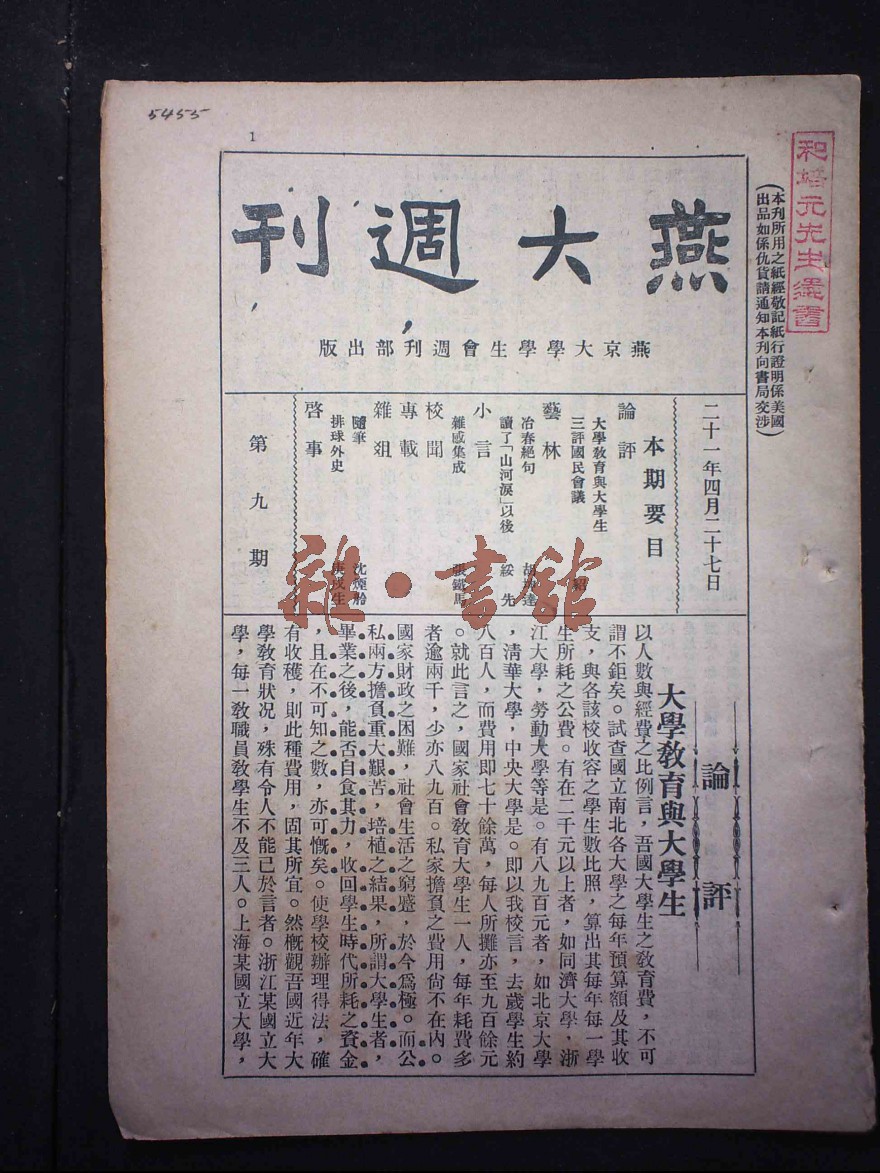 5455
1
和培元先生遺書
(本刊所用之紙經敬記紙行證明係美國
出品如係仇貨請通知本刊向書局交涉)
燕大週刊
燕京大學學生會週刊部出版
二十一年四月二十七日
本期要目
論評
大學教育與大學生
三評國民會議 紹
藝林
冶春絕句
讀了「山河淚」以後 綏先
小言
雜感集成 張鐵馬
校聞
專載
雜俎
隨筆 沈煙舲
排球外史 庚戌生
啓事
第九期
雜·書館
論評
大學教育與大學生
以人數與經費之比例言，吾國大學生之教育費，不可
謂不鉅矣。試查國立南北各大學之每年預算額及其收
支，與各該校收容之學生數比照，算出其每年每一學
生所耗之公費。有在二千元以上者，如同濟大學，浙
江大學，勞動大學等是。有八九百元者，如北京大學
，清華大學，中央大學是。即以我校言，去歲學生約
八百人，而費用即七十餘萬，每人所攤亦至九百餘元
。就此言之，國家社會教育大學生一人，每年耗費多
者逾兩千，少亦八九百。私家擔負之費用尙不在內。
國家財政之困難，社會生活之窮蹙，於今爲極。而公
私兩方擔負重大艱苦，培植之結果，所謂大學生者，
畢業之後，能否自食其力，收回學生時代所耗之資金
，且在不可知之數，亦可慨矣。使學校辦理得法，確
有收穫，則此種費用，固其所宜。然概觀吾國近年大
學教育狀况，殊有令人不能已於言者。浙江某國立大
學，每一教職員教學生不及三人。上海某國立大學，